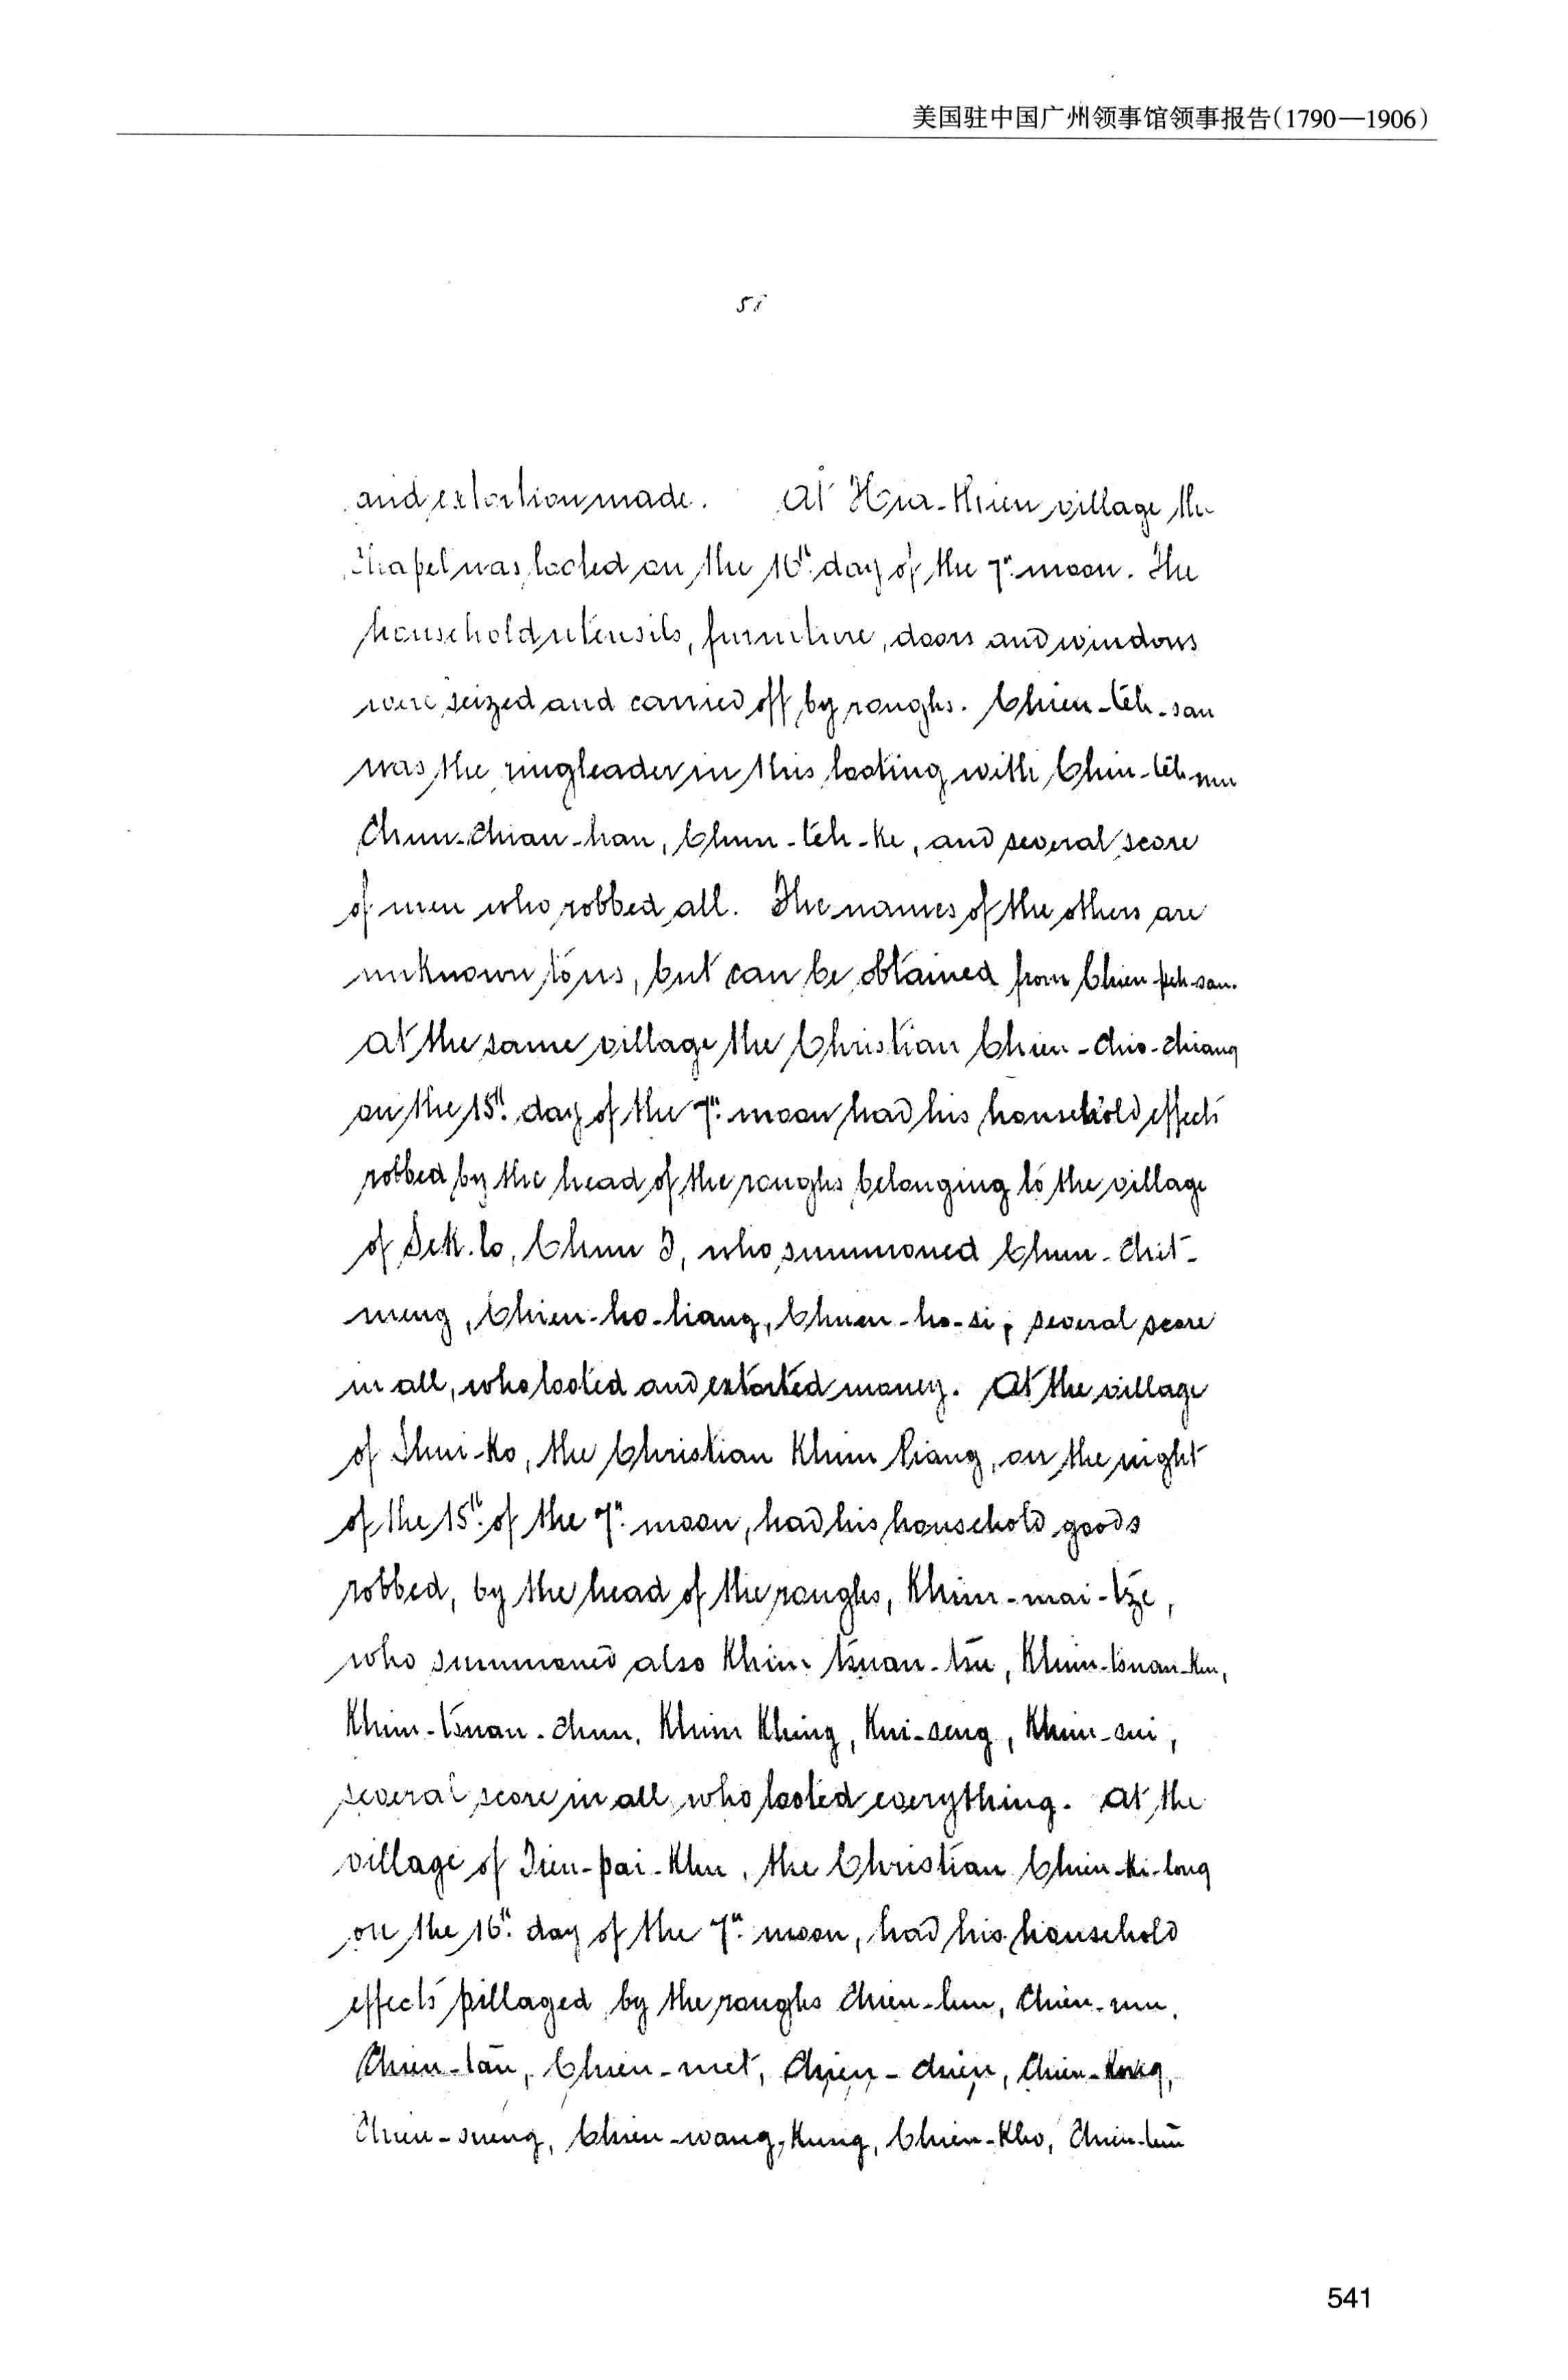 美国驻中国广州领事馆领事报告(1790—1906)
51
and extortion made. At Hua-Khien village the
Chapel was looted on the 16th day of the 7th moon. The
household utensils, furniture, doors and windows
were seized and carried off by roughs. Chien-teh-san
was the ringleader in this looting with Chin-teh-
Chun-Chian-han, Chun-teh-Ke, and several score
of men who robbed all. The names of the others are
unknown to us, but can be obtained from Chien-teh-san.
At the same village the Christian Chien-Chio-Chiang
on the 15th day of the 7th moon had his household effects
robbed by the head of the roughs belonging to the village
of Sek-lo, Chun I, who summoned Chun-Chit-
meng, Chien-ho-liang, Chuen-ho-si, several score
in all, who looted and extorted money. At the village
of Shui-Ko, the Christian Khim Liang, on the night
of the 15th of the 7th moon, had his household goods
robbed, by the head of the roughs, Khim-mai-tze,
who summoned also Khim Tsuan-tsu, Khim-Tsuan-Km,
Khim-Tsuan-Chun, Khim Khing, Kui-seng, Khim-sui,
several score in all who looted everything. At the
village of Tien-pai-Khu, the Christian Chien-Ki-long
on the 16th day of the 7th moon, had his household
effects pillaged by the roughs Chien-lun, Chien-
Chien-lan, Chien-met, Chien-Chien, Chien-Kong,
Chien-sueng, Chien-wang-Kung, Chien-Kho, Chien-lun
541